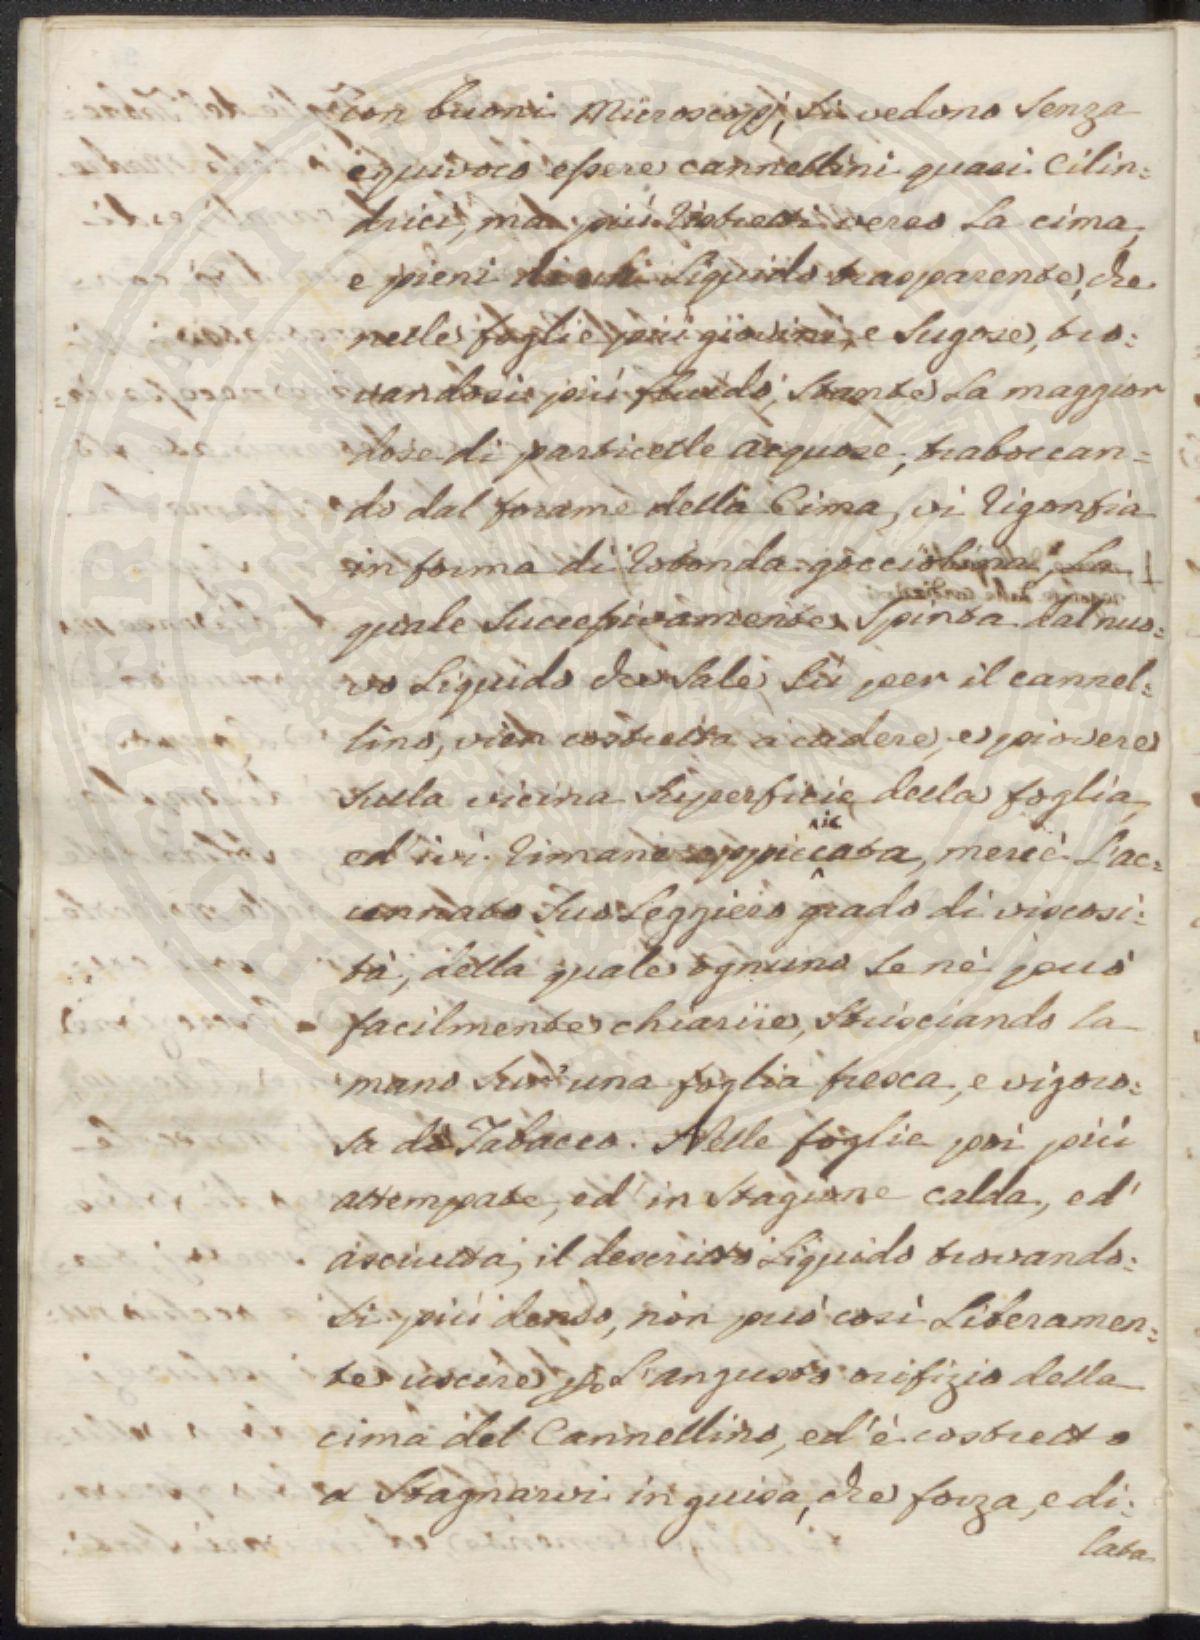 con buoni Microscopj, si vedono senza
equivoco essere cannellini quasi cilin:
drici, ma più ristretti verso la cima,
e pieni di un liquido trasparente, che
nelle foglie più giovini, e sugose, tro:
vandosi più fluido, stante la maggior
dose di particelle acquose, traboccan=
do dal forame della Cima, vi rigonfia
in forma di rotonda gocciolina, La
quale successivamente spinta dal nuo:
vo liquido che sale sù per il cannel:
lino, vien costretta a cadere, e piovere
sulla vicina superficie della foglia,
ed' ivi rimane appiccata, mercè l'ac:
cennato suo leggiero grado di viscosi:
tà, della quale ognuno se nè può
facilmente chiarire, strisciando la
mano sur una foglia fresca, e vigoro:
sa di Tabacco. Nelle foglie poi più
attempate, ed' in stagione calda, ed'
asciutta, il descritto liquido trovando:
si più denso, non può così liberamen:
te uscire p l'angusto orifizio della
cima del Cannellino, ed' è costretto
a stagnarvi in guisa, che forza, e di:
lata